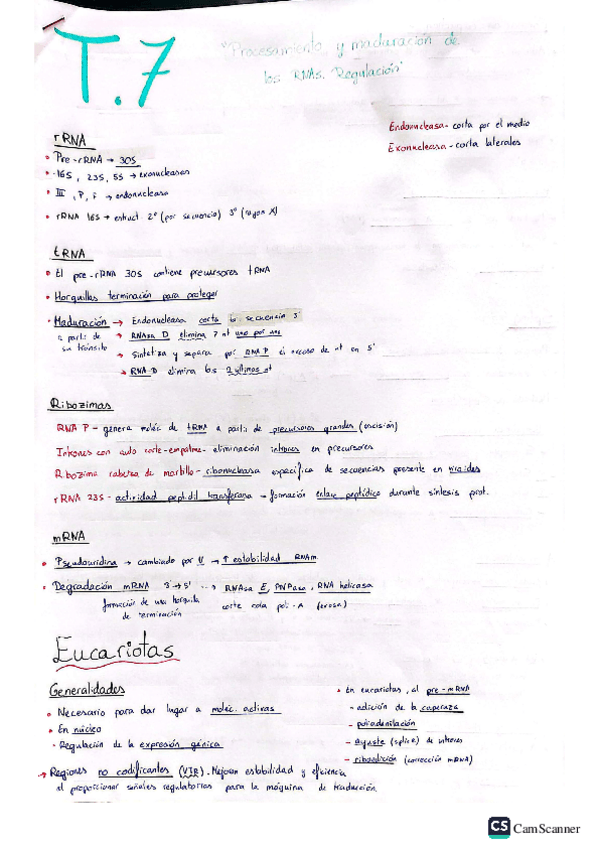 T.7
"Procesamiento y maduración de
los RNAs. Regulación"
Endonucleasa - corta por el medio
Exonucleasa - corta laterales
rRNA
• Pre-rRNA → 30S
• 16S, 23S, 5S → exonucleasas
• III, P, F → endonucleasa
• rRNA 16S → estruct. 2º (por secuencia) 3º (rayon X)
tRNA
• El pre-rRNA 30S contiene precursores tRNA
• Horquillas terminación para proteger
• Maduración → Endonucleasa corta la secuencia 3'
a partir de
su tránsito
→ RNAsa D elimina 7 nt uno por uno
→ sintetiza y separa por RNA P el exceso de nt en 5'
→ RNA D elimina los 2 últimos nt
Ribozimas
RNA P - genera moléc de tRNA a partir de precursores grandes (escisión)
Intrones con auto corte-empalme - eliminación intrones en precursores
Ribozima cabeza de martillo - ribonucleasa específica de secuencias presente en viroides
rRNA 23S - actividad peptidil transferasa → formación enlace peptídico durante síntesis prot.
mRNA
• Pseudouridina → cambiado por U → ↑ estabilidad RNAm
• Degradación mRNA 3'→5' --> RNAsa E, PNPasa, RNA helicasa
formación de una horquilla
de terminación
corte cola poli-A
Eucariotas
Generalidades
• Necesario para dar lugar a moléc. activas
• En núcleo
- Regulación de la expresión génica
→ Regiones no codificantes. Mejoran estabilidad y eficiencia
al proporcionar señales regulatorias para la máquina de traducción
• En eucariotas, al pre-mRNA
- adición de la caperuza
- poliadenilación
- ajuste (splice) de intrones
- riboedición (corrección mRNA)
CS CamScanner